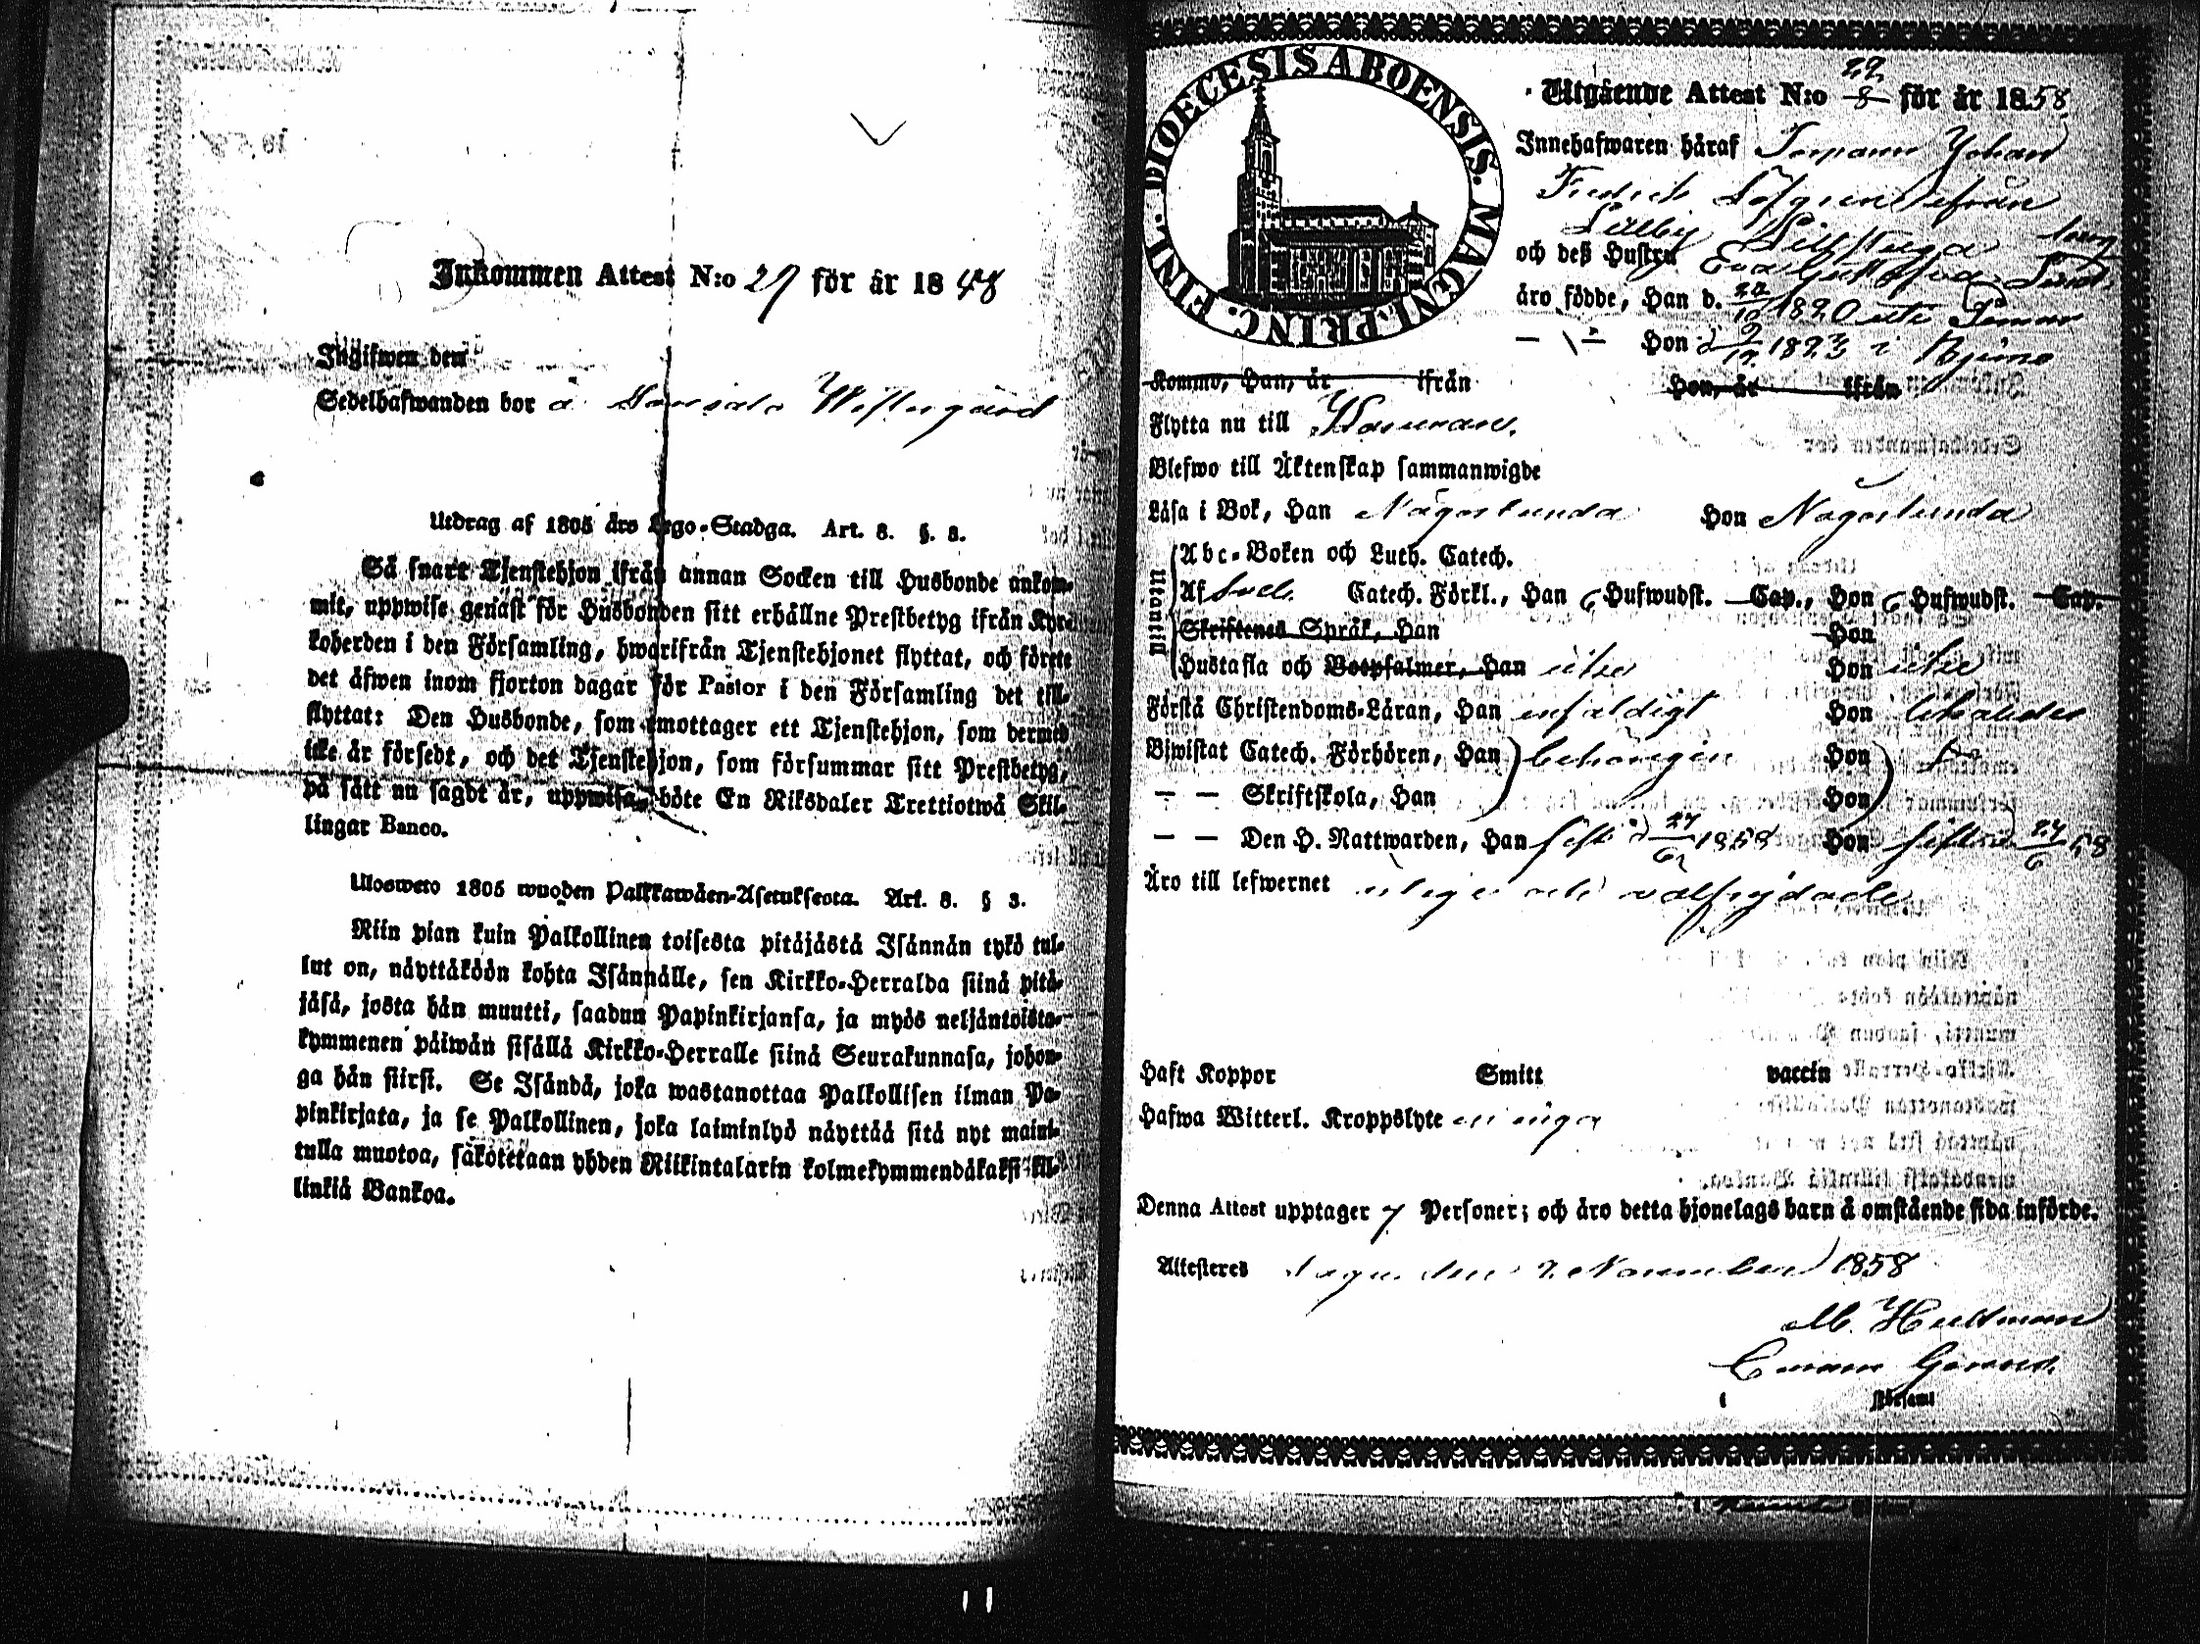 Inkommen Attest N:o 29 för år 1848
Ingifwen den
Sedelhafwanden bor å Westergård
Utdrag af 1805 års Lego-Stadga. Art. 8. §. 3.
Så snart Tjenstehjon ifrån annan Socken till Husbonde ankom-
mit, uppwise genast för Husbonden sitt erhållne Prestbetyg ifrån Kyr-
koherden i den Församling, hwarifrån Tjenstehjonet flyttat, och förete
det äfwen inom fjorton dagar för Pastor i den Församling det till-
flyttat: Den Husbonde, som emottager ett Tjenstehjon, som dermed
icke är försedt, och det Tjenstehjon, som försummar sitt Prestbetyg,
på sätt nu sagdt är, uppwisa, böte En Riksdaler Trettiotwå Skil-
lingar Banco.
Ulosweto 1805 wuoden Palkkawäen-Asetuksesta. Art. 8. § 3.
Niin pian kuin Palkollinen toisesta pitäjästä Isännän tykö tul-
lut on, näyttäköön kohta Isännälle, sen Kirkko-Herralda siinä pitä-
jäsä, josta hän muutti, saadun Papinkirjansa, ja myös neljäntoista-
kymmenen päiwän sisällä Kirkko-Herralle siinä Seurakunnasa, johon-
ga hän siirsi. Se Isändä, joka wastanottaa Palkollisen ilman Pa-
pinkirjata, ja se Palkollinen, joka laiminlyö näyttää sitä nyt maini-
tulla muotoa, sakotetaan yhden Riikintalarin kolmekymmendäkaksi kil-
linkiä Bankoa.
DIOECESIS ABOENSIS. MAGNI. PRINC. FINL.
Utgående Attest N:o 22/8 för år 1858.
Innehafwaren häraf Johan
Fredrik Löfgren ifrån
Lillby
och deß Hustru Eva Gustafva
äro födde, Han d. 1820
— Hon d 1823 i
Kommo, Han, år ifrån Hon, år ifrån
Flytta nu till
Blefwo till Äktenskap sammanwigde
Läsa i Bok, Han Någorlunda Hon Någorlunda
Utantill
Abc-Boken och Luth. Catech.
Af Sveb. Catech. Förkl., Han 6 Hufwudst. Cap., Hon 6 Hufwudst. Cap.
Skriftenes Språk, Han Hon
Hustafla och Botpsalmer, Han utur Hon utur
Förstå Christendoms-Läran, Han enfaldigt Hon likaledes
Bjwistat Catech. Förhören, Han behörigen Hon
— — Skriftskola, Han Hon
— — Den H. Nattwarden, Han sist d 27/6 1858 Hon sist d 27/6 58
Äro till lefwernet ärlige och välfrejdade
Haft Koppor Smitt vaccin
Hafwa Witterl. Kroppslyte inga
Denna Attest upptager 7 Personer; och äro detta hjonelags barn å omstående sida införde.
Attesteres den 2 November 1858
M. Hultman
i Församl